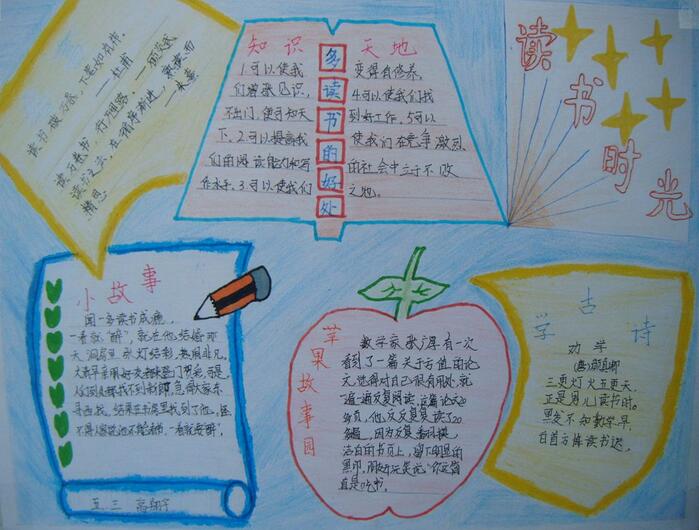 读书破万卷，下笔如有神。
——杜甫
读万卷书 行万里路。——
读书之法，在循序渐进，熟读而
精思。 ——朱熹
知识天地
多读书的好处
1.可以使我
们增长见识，
不出门，便可知天
下。2.可以提高我
们的阅读能力和写
作水平。3.可以使我们
变得有修养。
4可以使我们找
到好工作。5可以
使我们在竞争激烈
的社会中立于不败
之地。
读书时光
小故事
闻一多读书成瘾，
一看就"醉"，就在他结婚那
天，洞房里张灯结彩，热闹非凡。
大清早亲朋好友都来登门贺喜，可是
人们到处都找不到新郎，急得大家东
寻西找，结果在书房里找到了他，
一看就要醉。
五三
苹果故事园
数学家张广厚有一次
看到了一篇关于方值的论
文，觉得对自己很有用处，就
一遍一遍反复阅读。这篇论文20
多页，他反反复复读了
因为反复翻摸，
洁白的书页上，留下明显的
黑印，
直是吃书。
学古诗
劝学
(唐)颜真卿
三更灯火五更天，
正是男儿读书时。
黑发不知勤学早，
白首方悔读书迟。